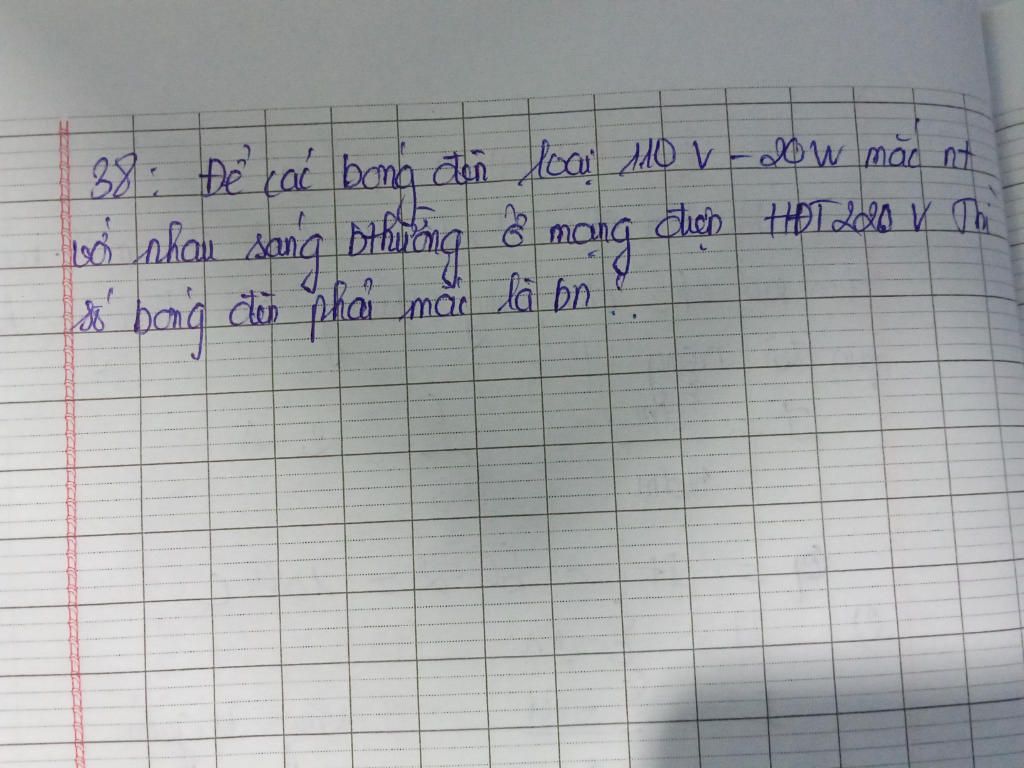 38: Để các bóng đèn loại 110 V - 20W mắc nt
với nhau sáng bthường ở mạng điện HĐT 220 V Thì
số bóng đèn phải mắc là bn ? ..